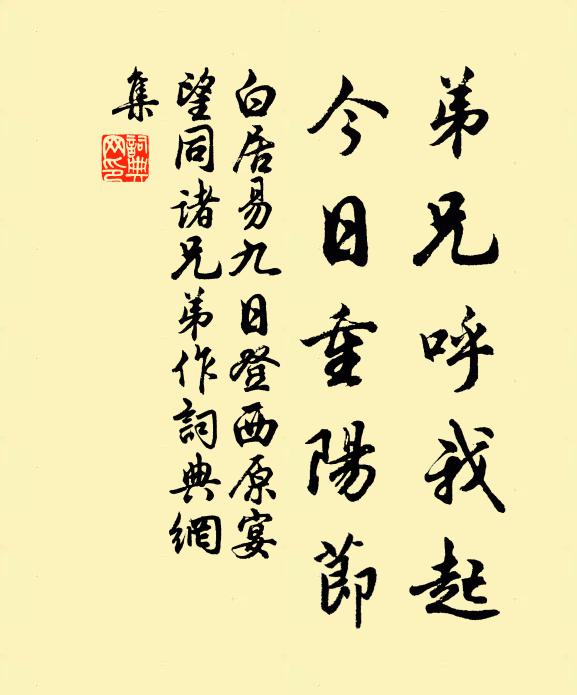 弟兄呼我起
今日重陽節
白居易九日登西原宴
望同诸兄弟作詞典網
集
詞典
网印